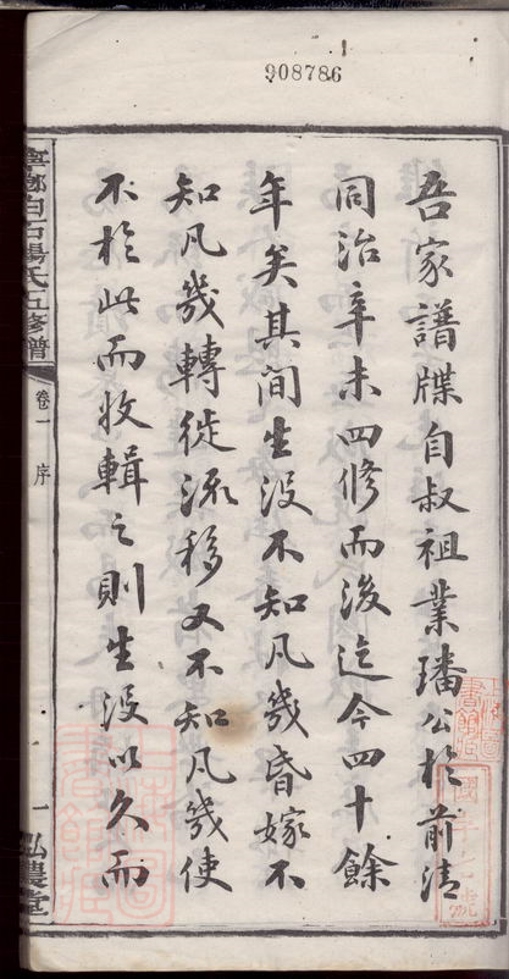 908786
吾家譜牒自叔祖業璠公於前清
同治辛未四修而後迄今四十餘
年矣其間生没不知凡幾昏嫁不
知凡幾轉徙流移又不知凡幾使
不於此而收輯之則生没以久而
寧鄉白石楊氏五修譜
卷一 序
一
弘農堂